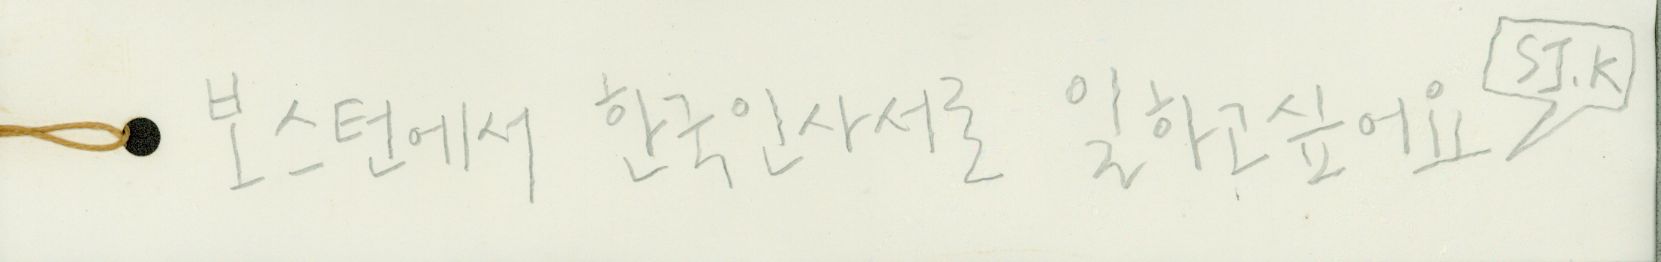 보스턴에서 한국인사서로 일하고싶어요
SJ.K